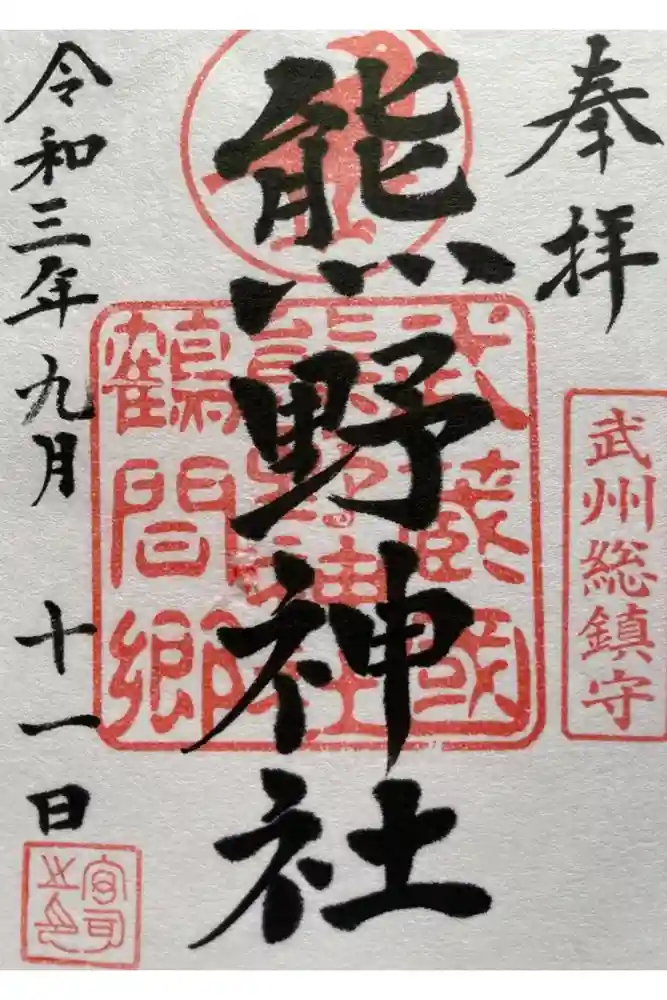 奉拝
武州総鎮守
熊野神社
武蔵國
熊野神社
鶴間郷
令和三年九月十一日
宮司之印